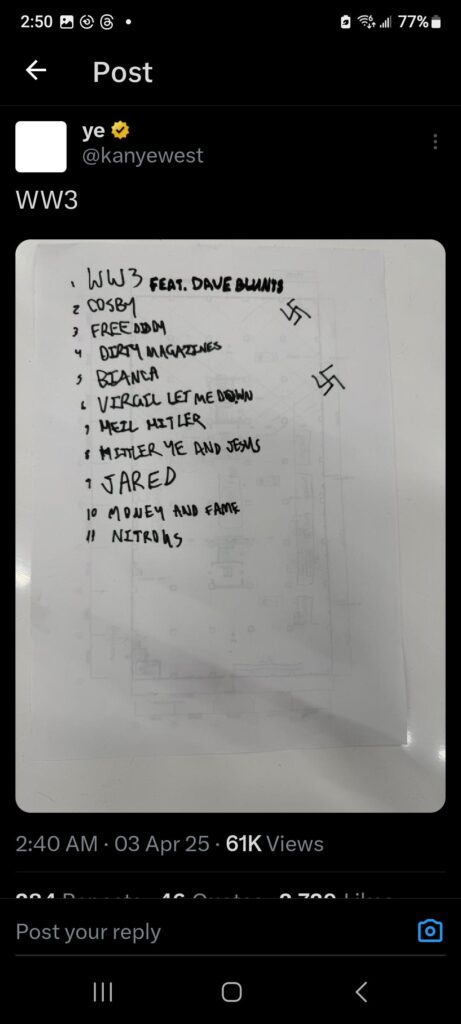 2:50
77%
Post
ye
@kanyewest
WW3
1 WW3 FEAT. DAVE BLUNTS
2 COSBY
3 FREE DIDDY
4 DIRTY MAGAZINES
5 BIANCA
6 VIRGIL LET ME DOWN
7 HEIL HITLER
8 HITLER YE AND JESUS
9 JARED
10 MONEY AND FAME
11 NITROUS
2:40 AM · 03 Apr 25 · 61K Views
Post your reply